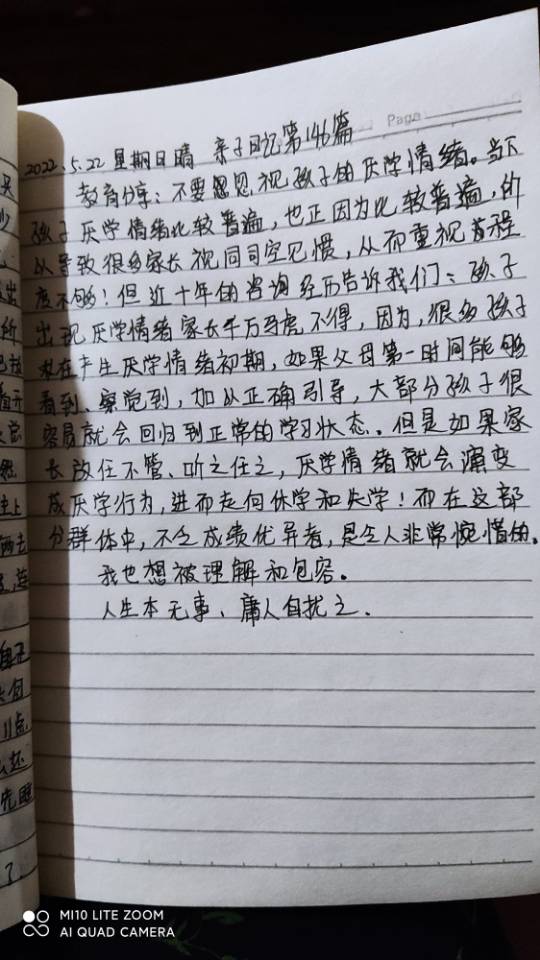 Page
2022.5.22 星期日晴 亲子日记第146篇
教育分享：不要忽视孩子的厌学情绪。当下
孩子厌学情绪比较普遍，也正因为比较普遍，所
以导致很多家长视同司空见惯，从而重视
度不够！但近十年的咨询经历告诉我们：孩子
出现厌学情绪家长千万马虎不得，因为，很多孩子
在产生厌学情绪初期，如果父母第一时间能够
看到、察觉到，加以正确引导，大部分孩子很
容易就会回归到正常的学习状态。但是如果家
长放任不管、听之任之，厌学情绪就会演变
成厌学行为，进而走向休学和失学！而在这部
分群体中，不乏成绩优异者，是令人非常惋惜的。
我也想被理解和包容。
人生本无事、庸人自扰之.
MI10 LITE ZOOM
AI QUAD CAMERA